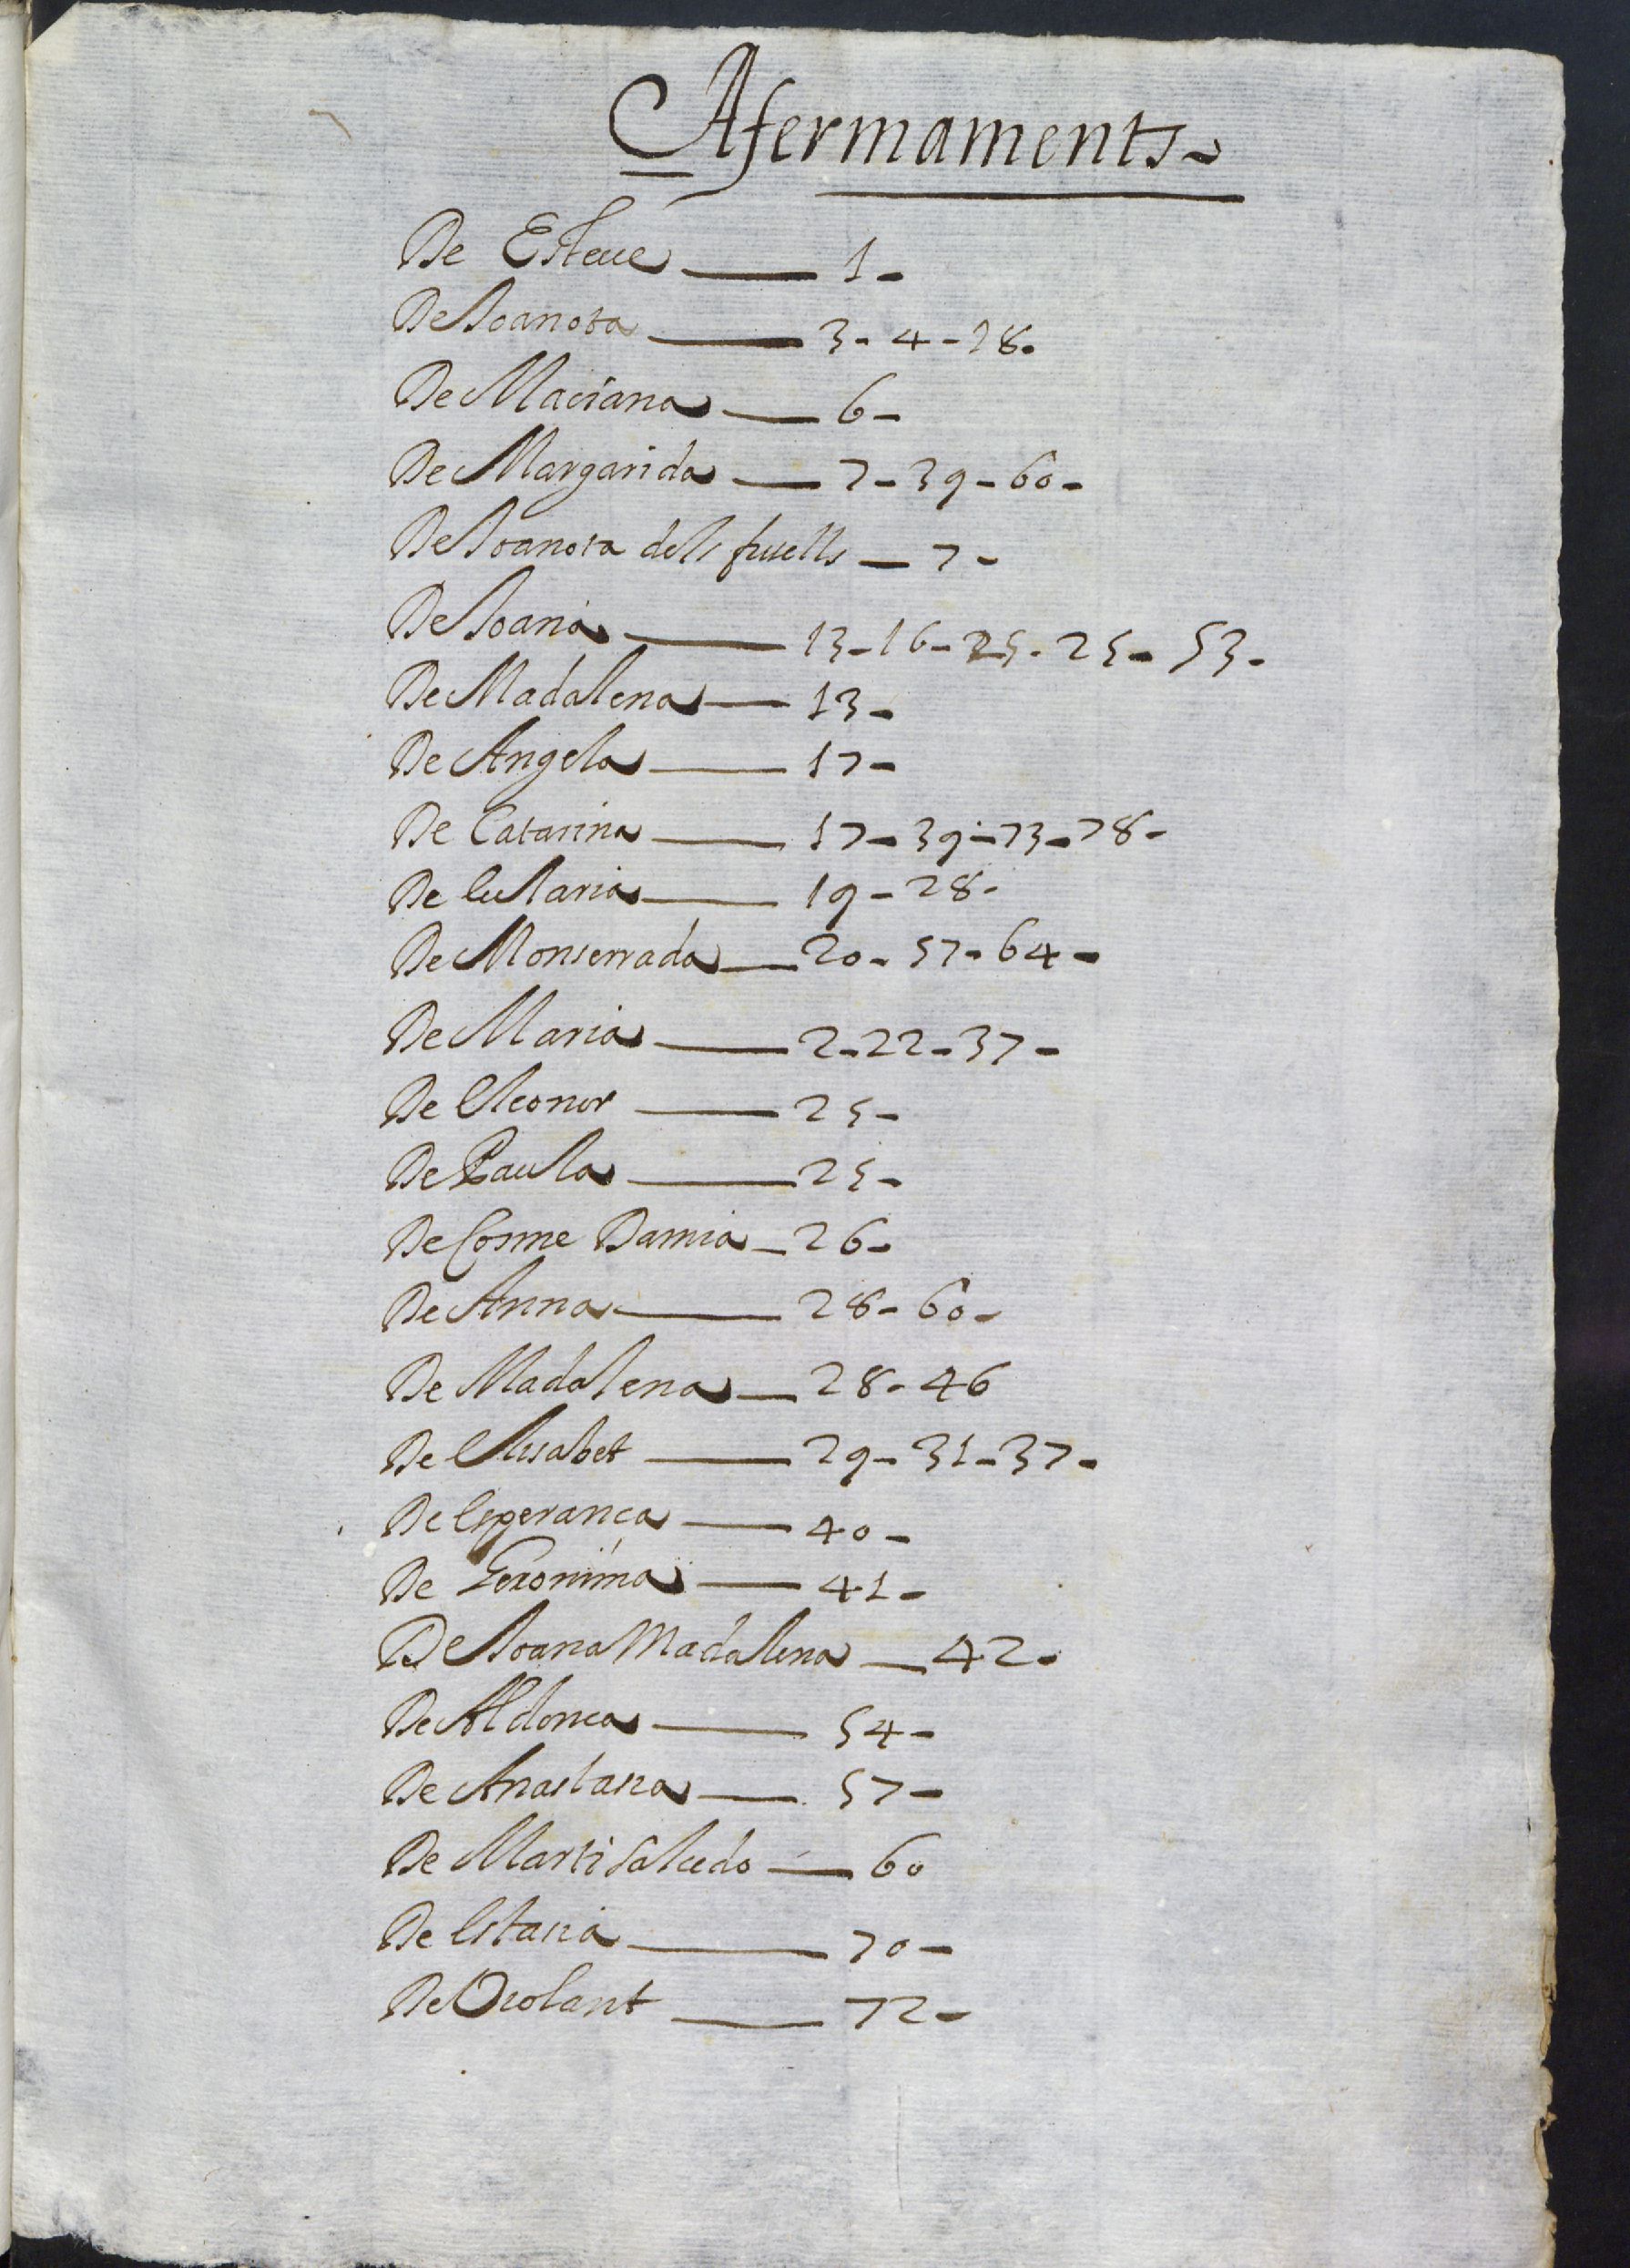 Afermaments
De Esteue — 1-
De Joanota — 3-4-18-
De Maciana — 6-
De Margarida — 7-39-60-
De Joanota dels fusells — 7-
De Joana — 13-16-25-25-53-
De Madalena — 13-
De Angela — 17-
De Catarina — 17-39-73-78-
De Eularia — 19-28-
De Monserrada — 20-57-64-
De Maria — 2-22-37-
De Eleonor — 25-
De Paula — 25-
De Cosme Damia — 26-
De Anna — 28-60-
De Madalena — 28-46
De Elisabet — 29-31-37-
De Esperanca — 40-
De Geronima — 41-
De Joana Madalena — 42-
De Aldonca — 54-
De Anastasia — 57-
De Marti Salcedo — 60
De Estasia — 70-
De Violant — 72-